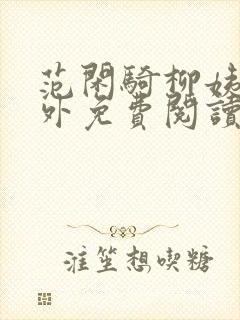 范閑騎柳姨
外免費閱讀
淮笙想喫糖